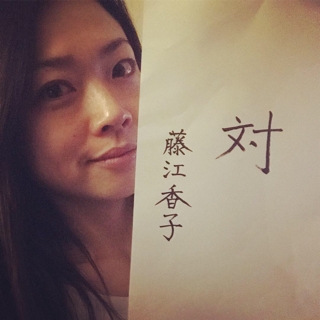 対
藤江香子